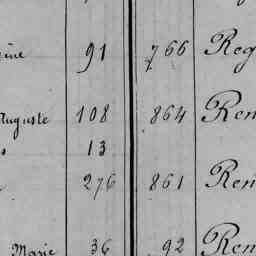 ine 91 766 Reg
Auguste 108 864 Ren
s 13
276 861 Ren
Marie 36 92 Ren